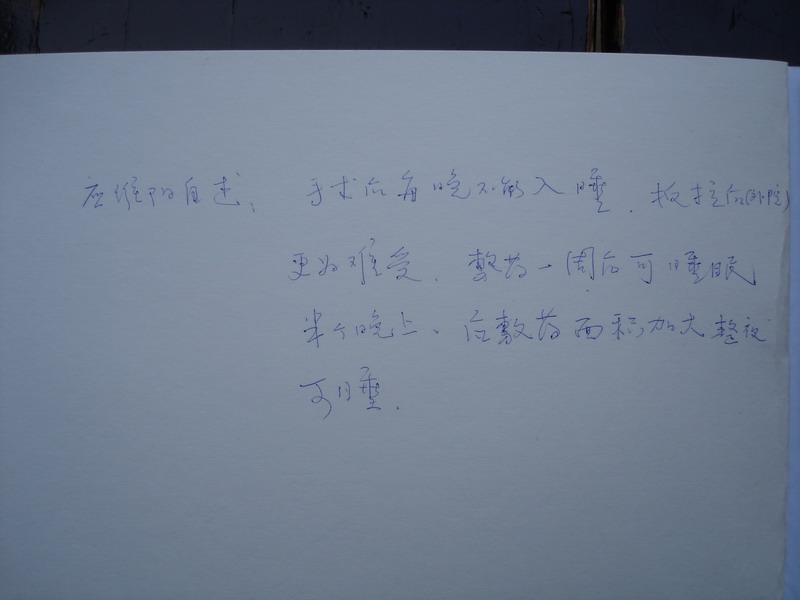 应维阳自述、 手术后每晚不能入睡. 拔拉后(卧院)
更为难受. 敷药一周后可睡眠
半个晚上、后敷药面积加大整夜
可睡.